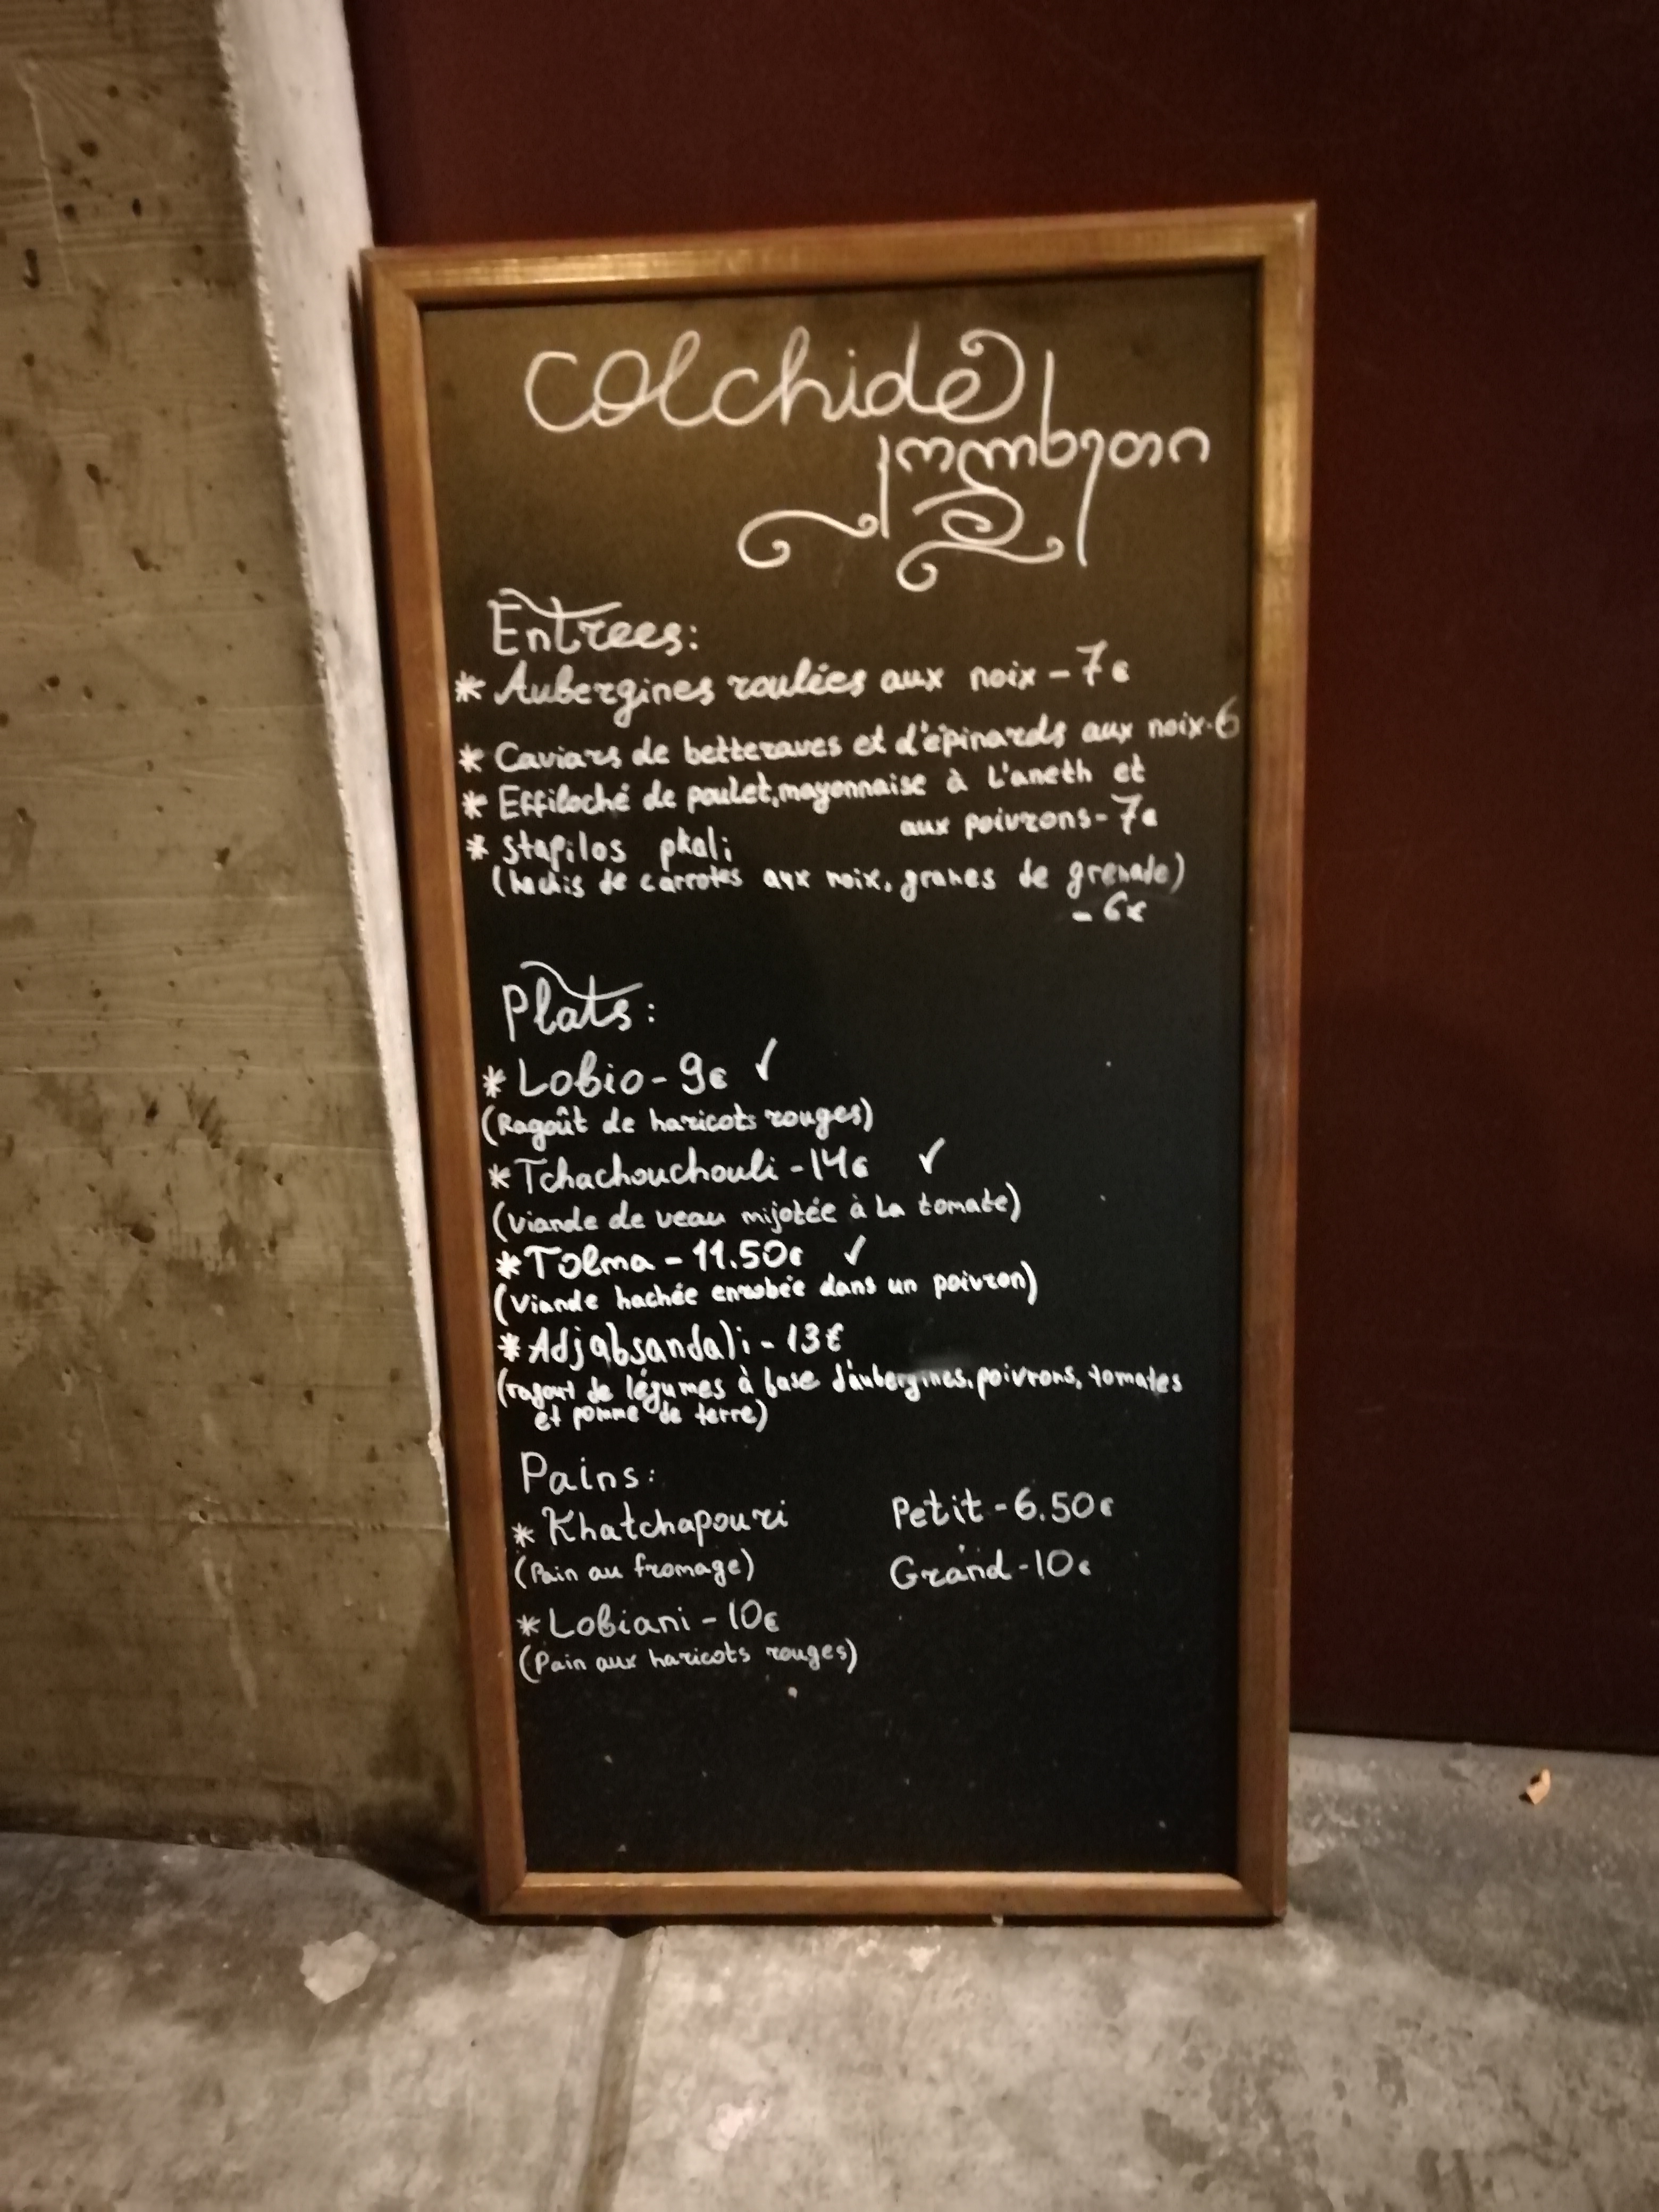 Colchide
კოლხეთი
Entrees:
* Aubergines roulées aux noix - 7€
* Caviars de betteraves et d'épinards aux noix-6
* Effiloché de poulet,mayonnaise à L'aneth et
aux poivrons- 7€
* stapilos pkali
(hachis de carrotes aux noix, granes de grenade)
- 6€
Plats:
* Lobio - 9€ ✓
(Ragoût de haricots rouges)
* Tchachouchouli - 14€ ✓
(Viande de veau mijotée à La tomate)
* Tolma - 11.50€ ✓
(Viande hachée enrobée dans un poivron)
* Adjabsandali - 13€
(ragout de légumes à base d'aubergines, poivrons, tomates
et pomme de terre)
Pains:
* Khatchapouri Petit - 6.50€
(Pain au fromage) Grand - 10€
* Lobiani - 10€
(Pain aux haricots rouges)